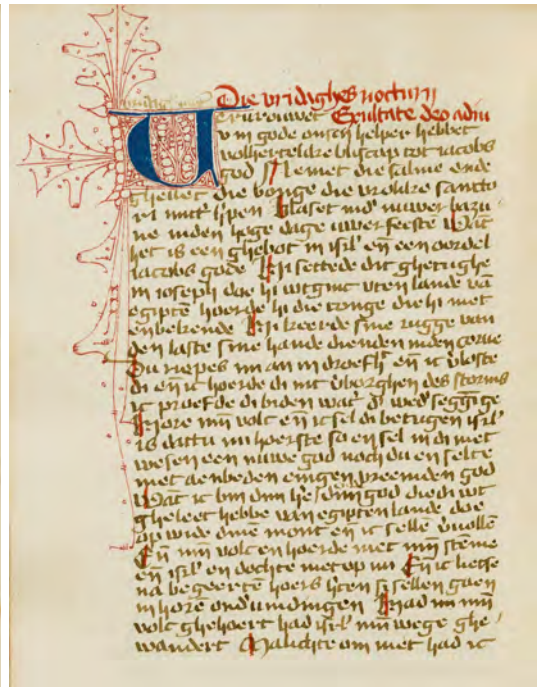 Die vridaghes nocturn
Ervrouwet Exultate deo adiu
v in gode onsen helper hebbet
volhertelike bliscap tot iacobs
god Nemet die salme ende
ghevet die bonge die vrolike santto
ri mitt' lipen Blaset ind' nuwer bazu
ne inden hoge dage uwer feeste Wāt
het is een ghebot in isrl' en̄ een oordel
iacobs gode Hi settede dit ghetughe
in ioseph doe hi wtginc vten lande vā
egiptē hoerde hi die tonge die hi niet
enbekende Hi keerde sine rugge van
den laste sine hande dienden inden corve
Du riepes mi an in droefh' en̄ ic v'loste
di en̄ ic hoerde di int v'borghen des storms
ic proefde di biden wat' d' wed'seggīge
Hore mijn volc en̄ ic sel di betugen isrl'
is dattu mi hoerste so en sel in di niet
wesen een nuwe god noch du en selte
niet aenbeden engen vreemden god
Wāt ic bin dijn he' dijn god die di wt
gheleet hebbe van egipten lande doe
op wide dinē mont en̄ ic sellē v'vullē
En̄ mijn volc en hoerde niet mijn stēme
en̄ isrl' en dochte niet op mi En̄ ic lietse
na begeertē hoers h'ten si sellen gaen
in horē ond'vindingen Had mi mijn
volc ghehoert had isrl' mijn wege ghe
wandert Malichte om niet had ic